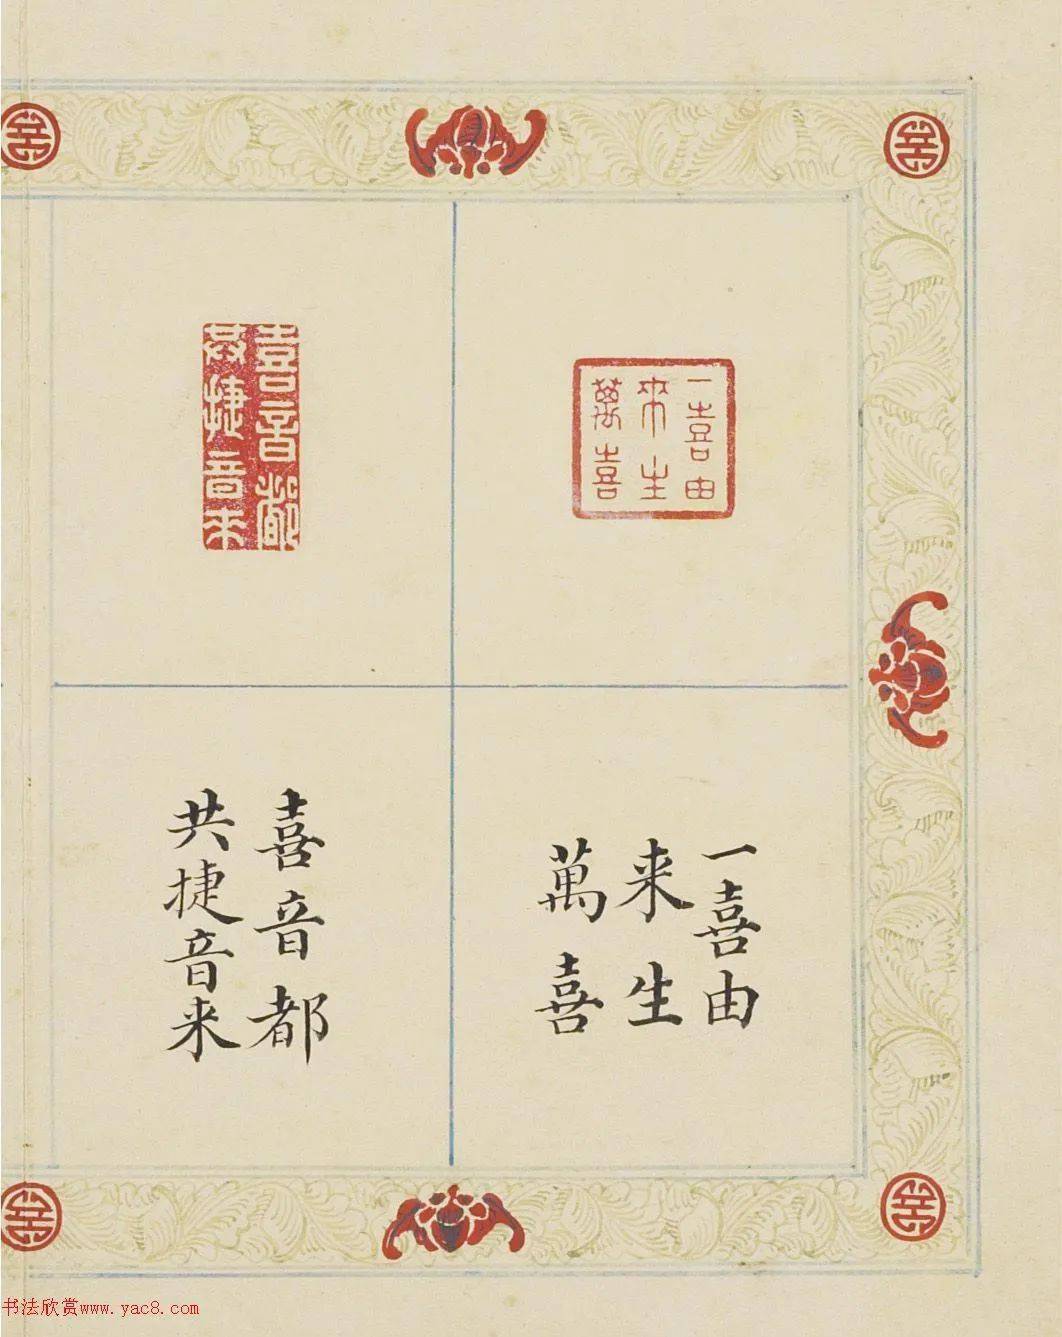 一喜由
来生
萬喜
喜音都
共捷音来
一喜由
来生
萬喜
喜音都
共捷音来
书法欣赏www.yac8.com